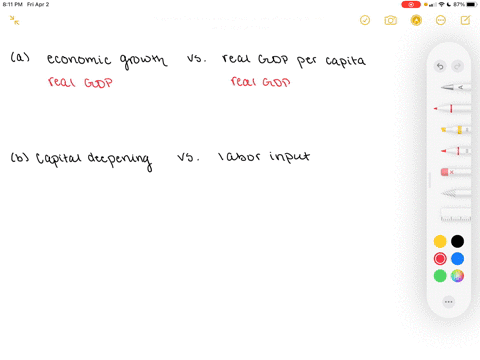 8:11 PM Fri Apr 2 87%
(a) economic growth vs. real GDP per capita
real GDP real GDP
(b) Capital deepening vs. labor input